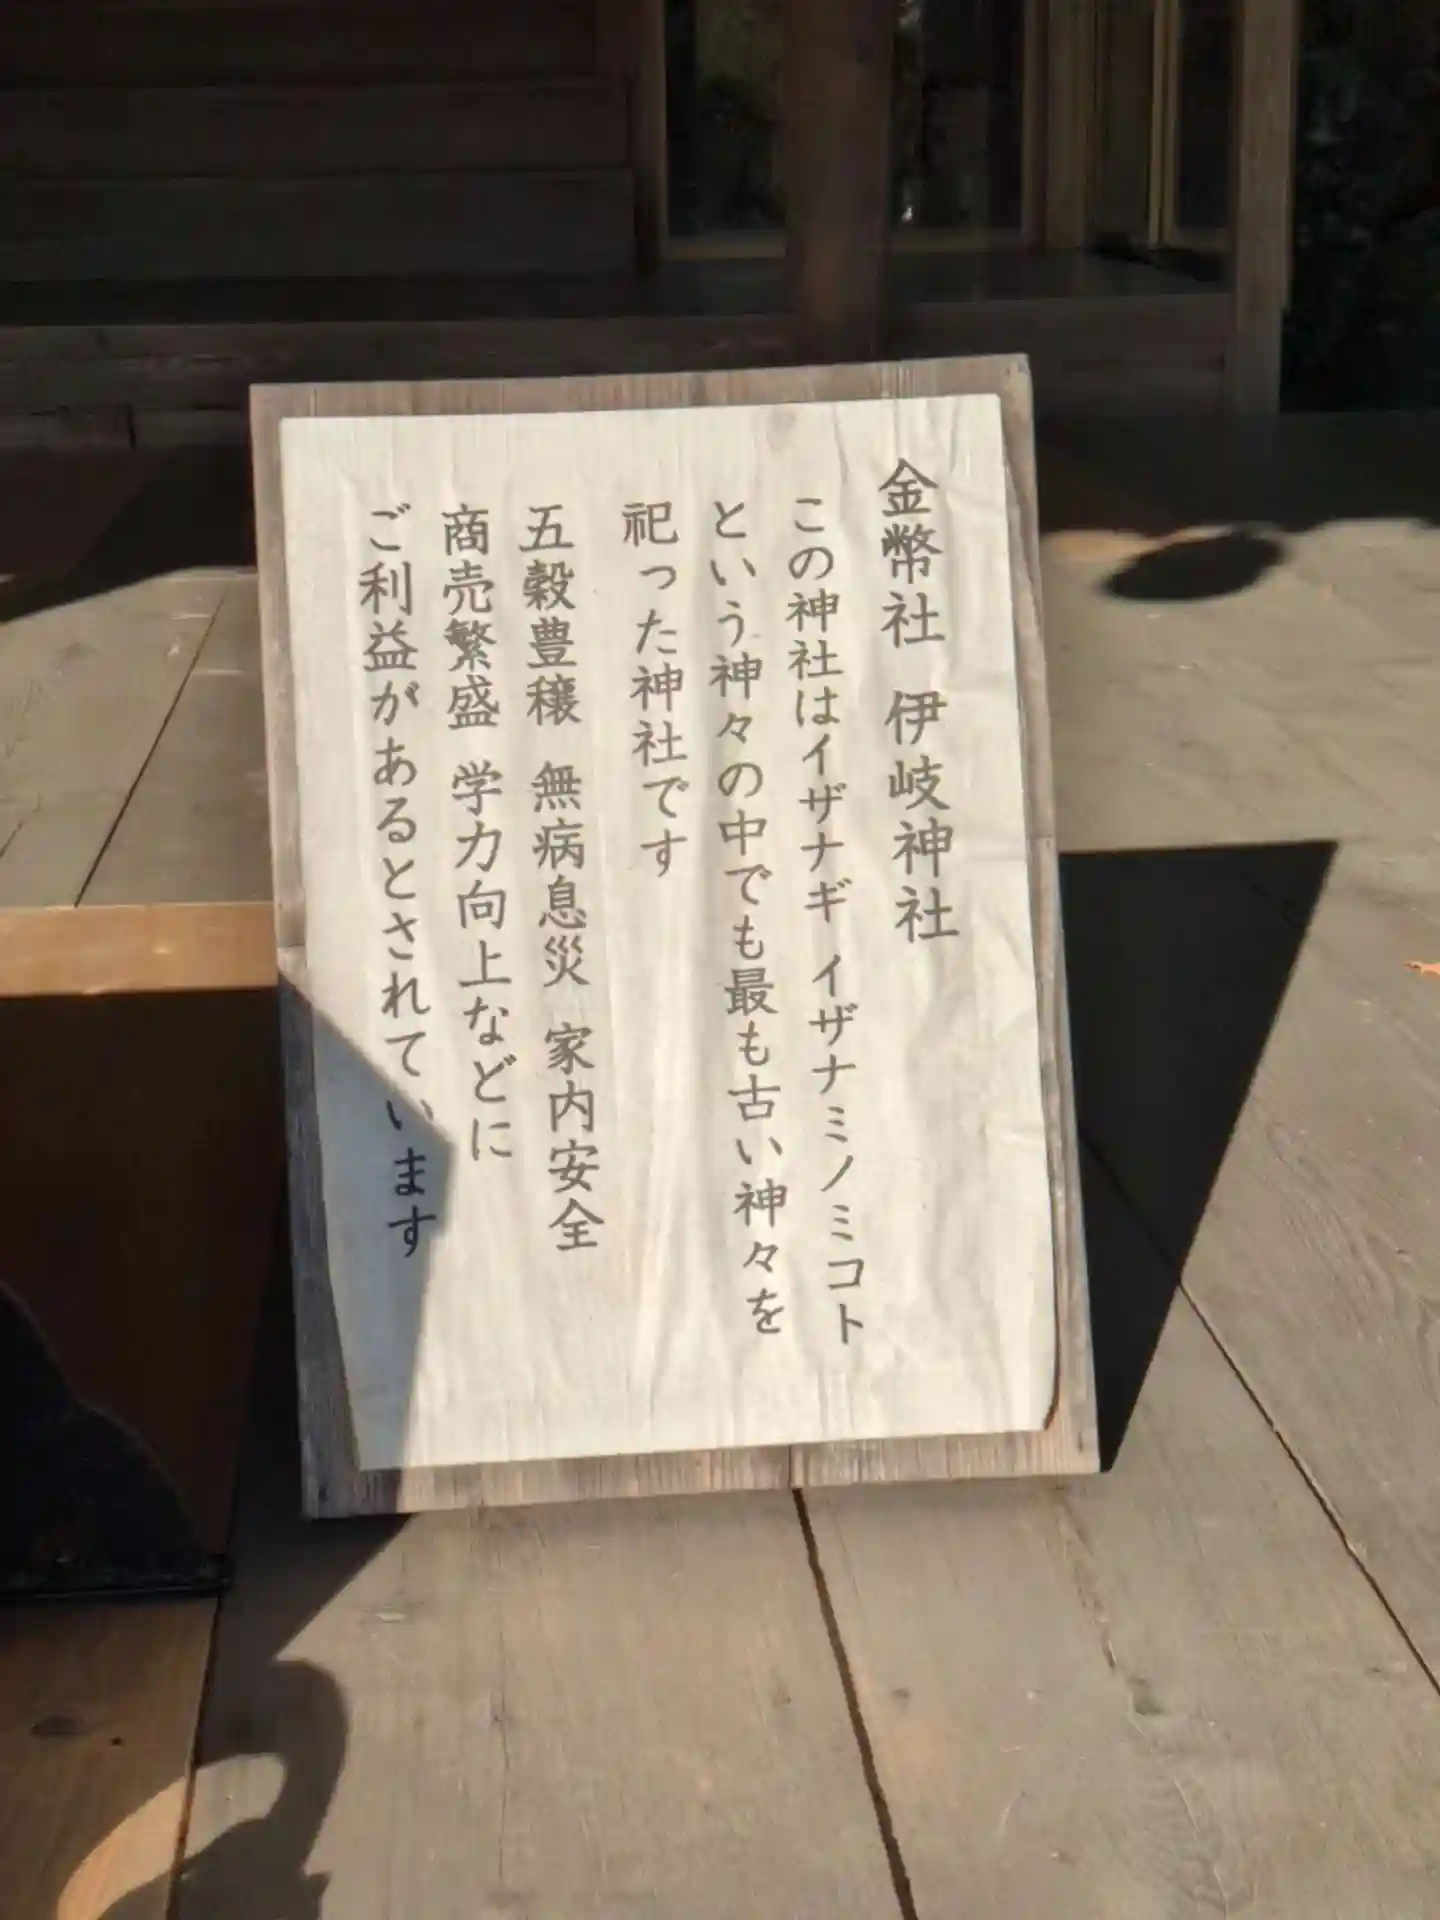 金幣社 伊岐神社
この神社はイザナギ イザナミノミコト
という神々の中でも最も古い神々を
祀った神社です
五穀豊穣 無病息災 家内安全
商売繁盛 学力向上などに
ご利益があるとされています